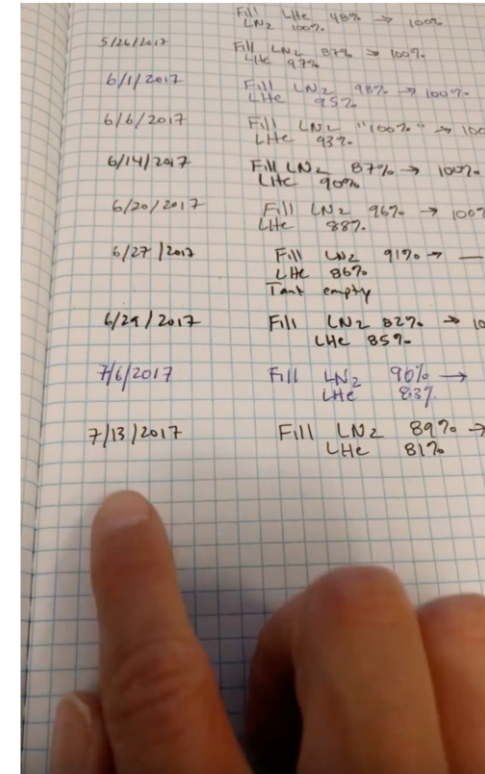 Fill LHe 48% → 100%
LN2 100%
5/26/2017 Fill LN2 87% → 100%
LHe 97%
6/1/2017 Fill LN2 98% → 100%
LHe 95%
6/6/2017 Fill LN2 "100%" → 100
LHe 93%
6/14/2017 Fill LN2 87% → 100%
LHe 90%
6/20/2017 Fill LN2 96% → 100%
LHe 88%
6/27/2017 Fill LN2 91% → —
LHe 86%
Tank empty
6/29/2017 Fill LN2 82% → 10
LHe 85%
7/6/2017 Fill LN2 90% →
LHe 83%
7/13/2017 Fill LN2 89% →
LHe 81%